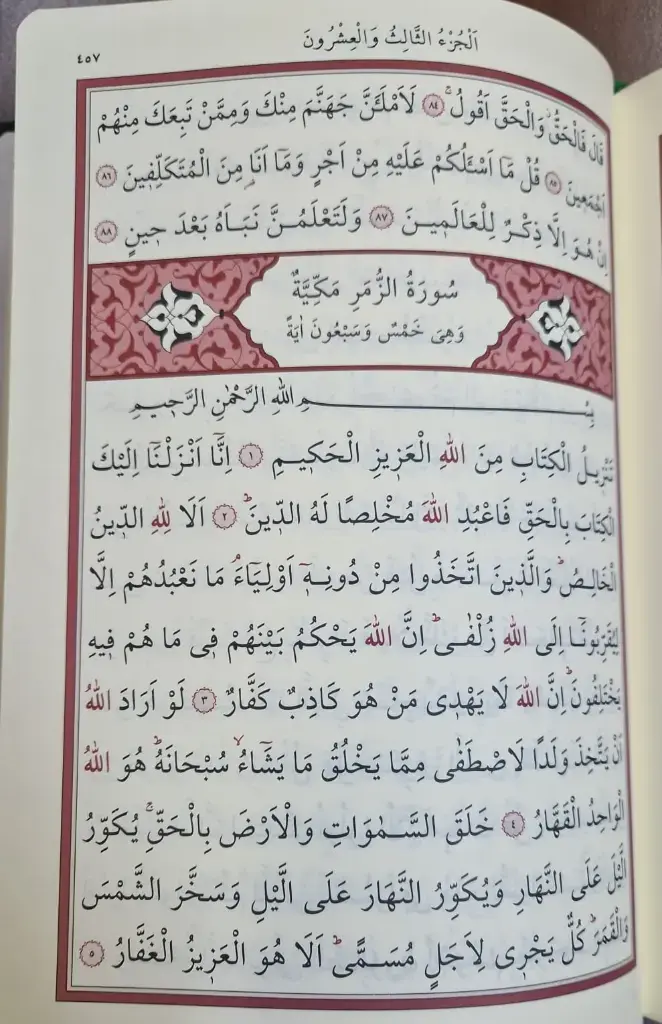 اَلْجُزْءُ الثَّالِثُ وَالْعِشْرُونَ
٤٥٧
قَالَ فَالْحَقُّۘ وَالْحَقَّ اَقُولُۚ ٨٤ لَاَمْلَـَٔنَّ جَهَنَّمَ مِنْكَ وَمِمَّنْ تَبِعَكَ مِنْهُمْ
اَجْمَعِينَ ٨٥ قُلْ مَٓا اَسْـَٔلُكُمْ عَلَيْهِ مِنْ اَجْرٍ وَمَٓا اَنَا۬ مِنَ الْمُتَكَلِّفِينَ ٨٦
اِنْ هُوَ اِلَّا ذِكْرٌ لِلْعَالَمِينَ ٨٧ وَلَتَعْلَمُنَّ نَبَاَهُ بَعْدَ حِينٍ ٨٨
سُورَةُ الزُّمَرِ مَكِّيَّةٌ
وَهِىَ خَمْسٌ وَسَبْعُونَ اٰيَةً
بِسْمِ اللّٰهِ الرَّحْمٰنِ الرَّحِيمِ
تَنْزِيلُ الْكِتَابِ مِنَ اللّٰهِ الْعَزِيزِ الْحَكِيمِ ١ اِنَّٓا اَنْزَلْنَٓا اِلَيْكَ
الْكِتَابَ بِالْحَقِّ فَاعْبُدِ اللّٰهَ مُخْلِصًا لَهُ الدِّينَۜ ٢ اَلَا لِلّٰهِ الدِّينُ
الْخَالِصُۜ وَالَّذِينَ اتَّخَذُوا مِنْ دُونِهِٓ اَوْلِيَٓاءَۢ مَا نَعْبُدُهُمْ اِلَّا
لِيُقَرِّبُونَٓا اِلَى اللّٰهِ زُلْفٰىۜ اِنَّ اللّٰهَ يَحْكُمُ بَيْنَهُمْ فِى مَا هُمْ فِيهِ
يَخْتَلِفُونَۜ اِنَّ اللّٰهَ لَا يَهْدِى مَنْ هُوَ كَاذِبٌ كَفَّارٌ ٣ لَوْ اَرَادَ اللّٰهُ
اَنْ يَتَّخِذَ وَلَدًا لَاصْطَفٰى مِمَّا يَخْلُقُ مَا يَشَٓاءُۙ سُبْحَانَهُۜ هُوَ اللّٰهُ
الْوَاحِدُ الْقَهَّارُ ٤ خَلَقَ السَّمٰوَاتِ وَالْاَرْضَ بِالْحَقِّۚ يُكَوِّرُ
الَّيْلَ عَلَى النَّهَارِ وَيُكَوِّرُ النَّهَارَ عَلَى الَّيْلِ وَسَخَّرَ الشَّمْسَ
وَالْقَمَرَۜ كُلٌّ يَجْرِى لِاَجَلٍ مُسَمًّىۜ اَلَا هُوَ الْعَزِيزُ الْغَفَّارُ ٥